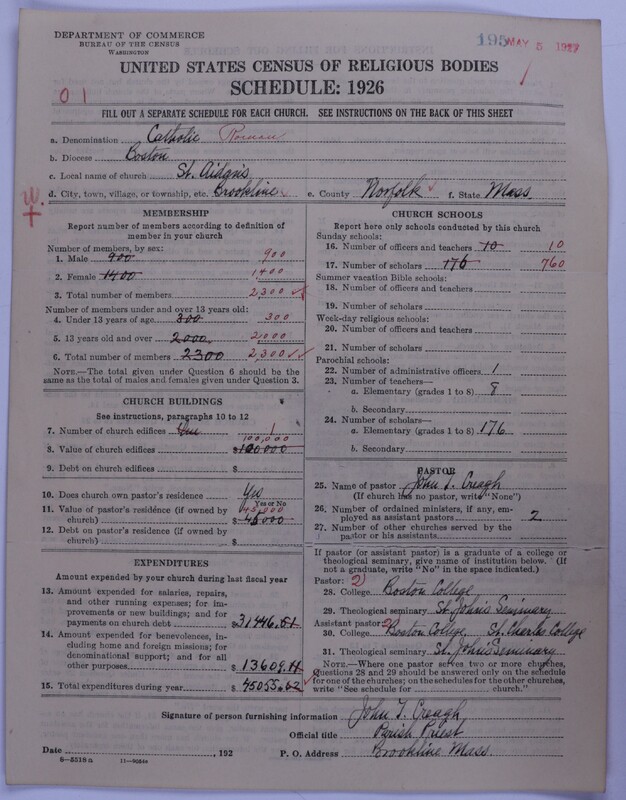 DEPARTMENT OF COMMERCE
BUREAU OF THE CENSUS
WASHINGTON
195 MAY 5 1927
UNITED STATES CENSUS OF RELIGIOUS BODIES
SCHEDULE: 1926
0 1
FILL OUT A SEPARATE SCHEDULE FOR EACH CHURCH. SEE INSTRUCTIONS ON THE BACK OF THIS SHEET
a. Denomination Catholic Roman
b. Diocese Boston
c. Local name of church St. Aidan's
d. City, town, village, or township, etc. Brookline e. County Norfolk f. State Mass.
MEMBERSHIP
Report number of members according to definition of
member in your church
Number of members, by sex:
1. Male 900 900
2. Female 1400 1,400
3. Total number of members 2,300
Number of members under and over 13 years old:
4. Under 13 years of age 300 300
5. 13 years old and over 2000 2000
6. Total number of members 2300 2,300
NOTE.—The total given under Question 6 should be the
same as the total of males and females given under Question 3.
CHURCH BUILDINGS
See instructions, paragraphs 10 to 12
7. Number of church edifices 1
100,000
8. Value of church edifices $100000
9. Debt on church edifices $
10. Does church own pastor's residence Yes
Yes or No
11. Value of pastor's residence (if owned by 45,000
church) $45000
12. Debt on pastor's residence (if owned by
church) $
EXPENDITURES
Amount expended by your church during last fiscal year
13. Amount expended for salaries, repairs,
and other running expenses; for im-
provements or new buildings; and for
payments on church debt $31446.51
14. Amount expended for benevolences, in-
cluding home and foreign missions; for
denominational support; and for all
other purposes $13609.11
15. Total expenditures during year $45055.62
CHURCH SCHOOLS
Report here only schools conducted by this church
Sunday schools:
16. Number of officers and teachers 10 10
17. Number of scholars 176 760
Summer vacation Bible schools:
18. Number of officers and teachers
19. Number of scholars
Week-day religious schools:
20. Number of officers and teachers
21. Number of scholars
Parochial schools:
22. Number of administrative officers 1
23. Number of teachers—
a. Elementary (grades 1 to 8) 8
b. Secondary
24. Number of scholars—
a. Elementary (grades 1 to 8) 176
b. Secondary
PASTOR
25. Name of pastor John T. Creagh
(If church has no pastor, write "None")
26. Number of ordained ministers, if any, em-
ployed as assistant pastors 2
27. Number of other churches served by the
pastor or his assistants
If pastor (or assistant pastor) is a graduate of a college or
theological seminary, give name of institution below. (If
not a graduate, write "No" in the space indicated.)
Pastor: 2
28. College Boston College
29. Theological seminary St. John's Seminary
Assistant pastor: 2
30. College Boston College St. Charles College
31. Theological seminary St. John's Seminary
NOTE.—Where one pastor serves two or more churches,
Questions 28 and 29 should be answered only on the schedule
for one of the churches; on the schedules for the other churches,
write "See schedule for church."
Signature of person furnishing information John T. Creagh
Official title Parish Priest
Date , 192 P. O. Address Brookline Mass.
8—5518a